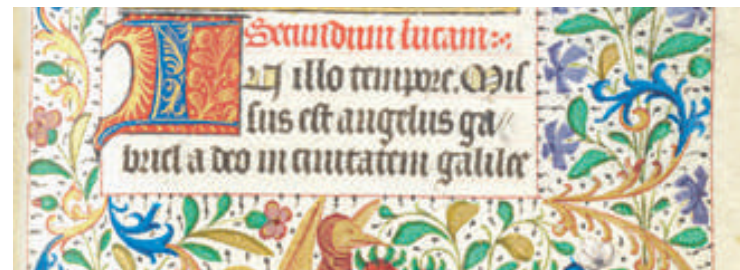 Secundum lucam:
IN illo tempore. Mis
sus est angelus ga//
briel a deo in ciuitatem galilee